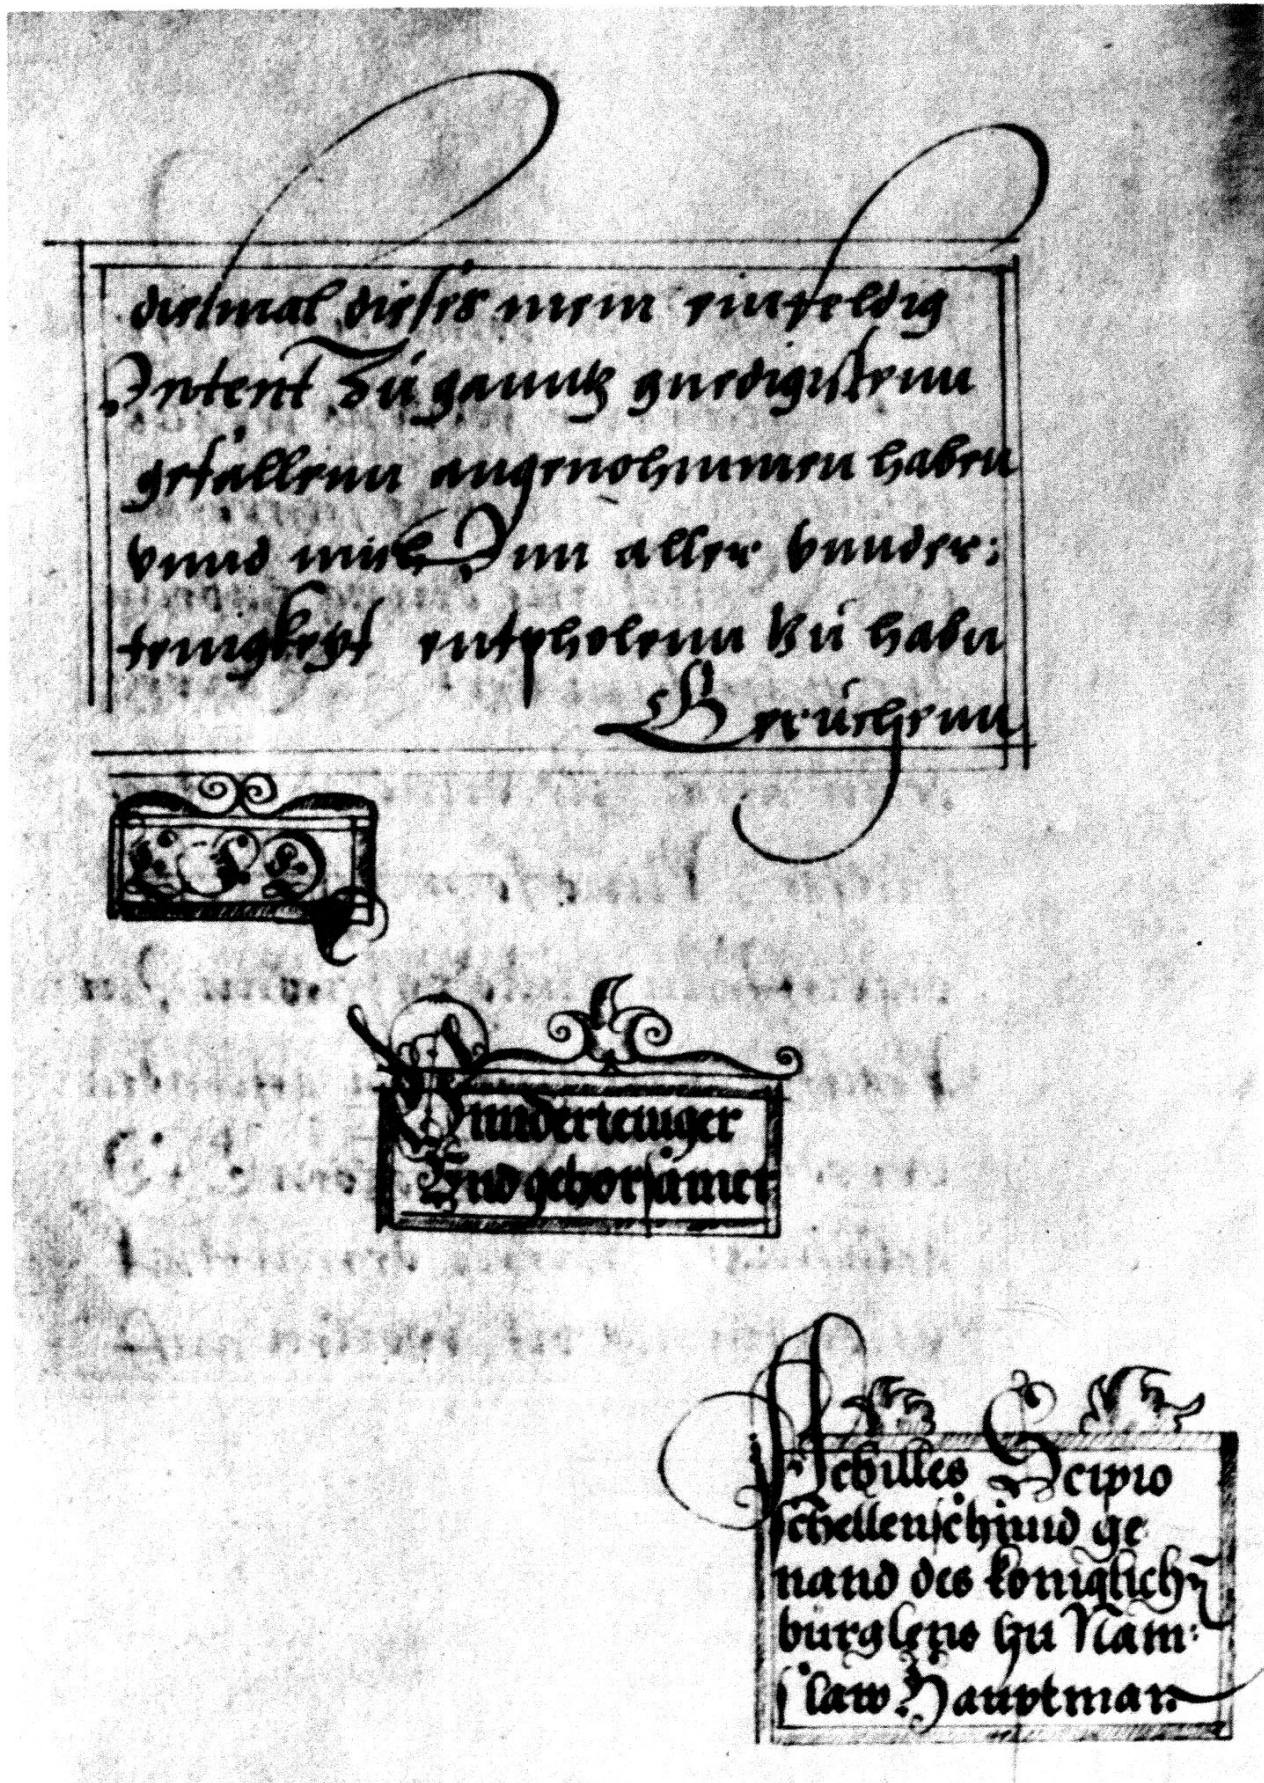 diesmal dieses mein einfeldig
Intent Zu ganntz gnedigistenn
gefallenn angenohmmen haben
vnnd mich Inn aller vnnder:
tenigkeyt entpholenn zu habn
Geruchenn
E. F. G.
Vnndertenigер
Vnd gehorsamer
Achilles Scipio
schellenschmid ge
nand des koniglichn
burglens zu Nam:
slaw Hauptman